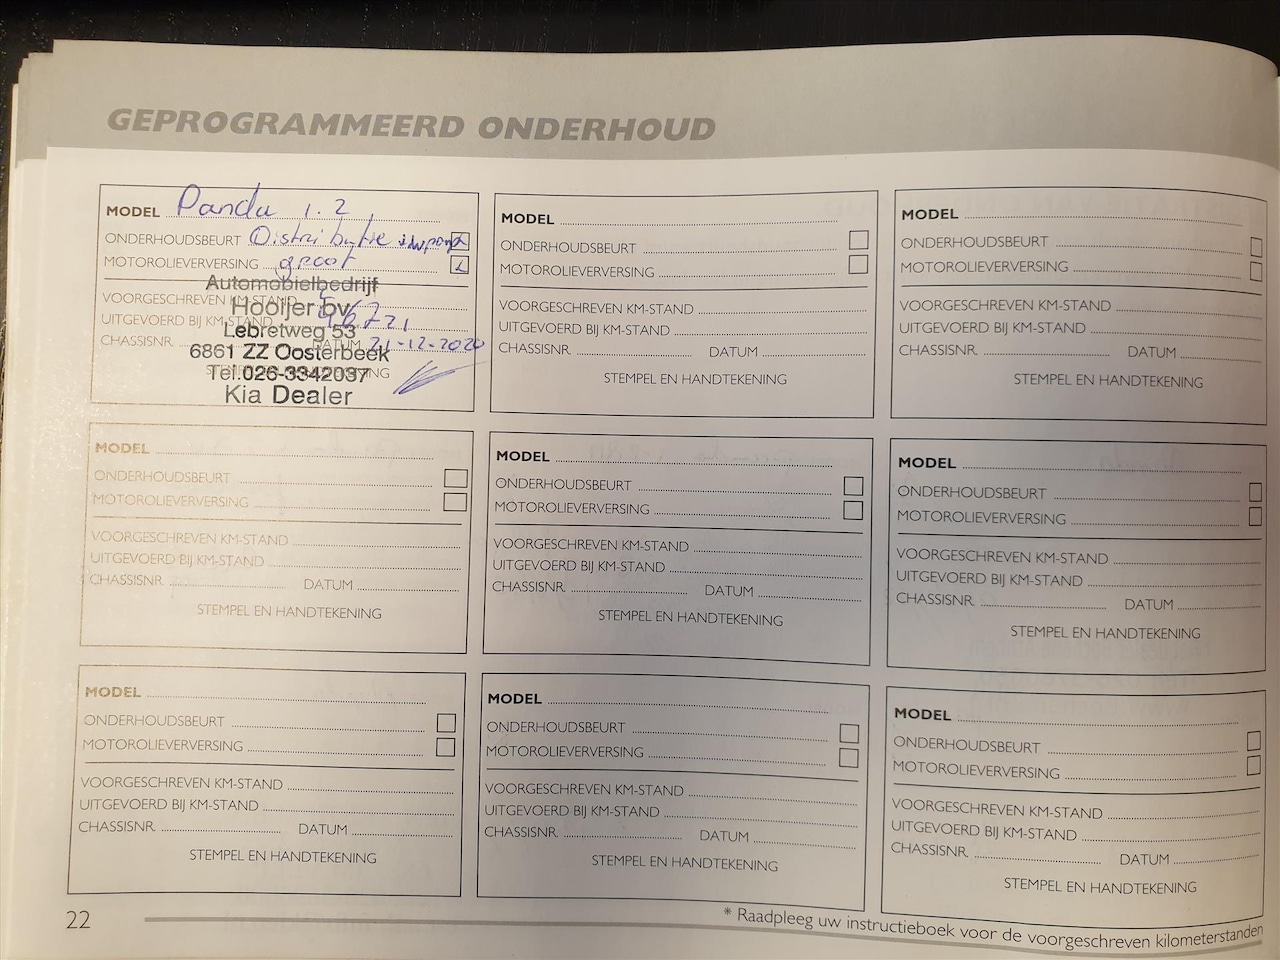 GEPROGRAMMEERD ONDERHOUD
MODEL Panda 1.2
ONDERHOUDSBEURT Distributie
MOTOROLIEVERVERSING groot
Automobielbedrijf
VOORGESCHREVEN KM-STAND
Hooijer bv
UITGEVOERD BIJ KM-STAND 46721
Lebretweg 53
CHASSISNR. DATUM 21-12-2020
6861 ZZ Oosterbeek
STEMPEL EN HANDTEKENING
Tel.026-3342037
Kia Dealer
MODEL
ONDERHOUDSBEURT
MOTOROLIEVERVERSING
VOORGESCHREVEN KM-STAND
UITGEVOERD BIJ KM-STAND
CHASSISNR. DATUM
STEMPEL EN HANDTEKENING
MODEL
ONDERHOUDSBEURT
MOTOROLIEVERVERSING
VOORGESCHREVEN KM-STAND
UITGEVOERD BIJ KM-STAND
CHASSISNR. DATUM
STEMPEL EN HANDTEKENING
MODEL
ONDERHOUDSBEURT
MOTOROLIEVERVERSING
VOORGESCHREVEN KM-STAND
UITGEVOERD BIJ KM-STAND
CHASSISNR. DATUM
STEMPEL EN HANDTEKENING
MODEL
ONDERHOUDSBEURT
MOTOROLIEVERVERSING
VOORGESCHREVEN KM-STAND
UITGEVOERD BIJ KM-STAND
CHASSISNR. DATUM
STEMPEL EN HANDTEKENING
MODEL
ONDERHOUDSBEURT
MOTOROLIEVERVERSING
VOORGESCHREVEN KM-STAND
UITGEVOERD BIJ KM-STAND
CHASSISNR. DATUM
STEMPEL EN HANDTEKENING
MODEL
ONDERHOUDSBEURT
MOTOROLIEVERVERSING
VOORGESCHREVEN KM-STAND
UITGEVOERD BIJ KM-STAND
CHASSISNR. DATUM
STEMPEL EN HANDTEKENING
MODEL
ONDERHOUDSBEURT
MOTOROLIEVERVERSING
VOORGESCHREVEN KM-STAND
UITGEVOERD BIJ KM-STAND
CHASSISNR. DATUM
STEMPEL EN HANDTEKENING
MODEL
ONDERHOUDSBEURT
MOTOROLIEVERVERSING
VOORGESCHREVEN KM-STAND
UITGEVOERD BIJ KM-STAND
CHASSISNR. DATUM
STEMPEL EN HANDTEKENING
22
* Raadpleeg uw instructieboek voor de voorgeschreven kilometerstanden